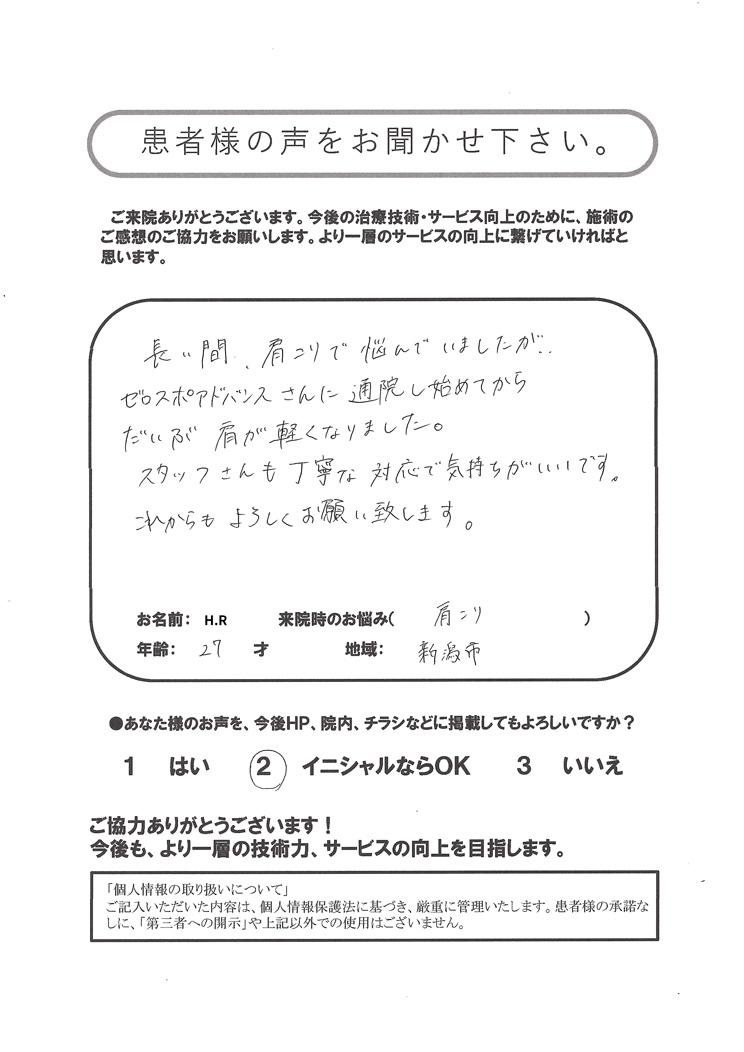 患者様の声をお聞かせ下さい。
ご来院ありがとうございます。今後の治療技術・サービス向上のために、施術の
ご感想のご協力をお願いします。より一層のサービスの向上に繋げていければと
思います。
長い間、肩こりで悩んでいましたが、
ゼロスポアドバンスさんに通院し始めてから
だいぶ肩が軽くなりました。
スタッフさんも丁寧な対応で気持ちがいいです。
これからもよろしくお願い致します。
お名前: H.R 来院時のお悩み( 肩こり )
年齢: 27 才 地域: 新潟市
●あなた様のお声を、今後HP、院内、チラシなどに掲載してもよろしいですか？
1 はい 2 イニシャルならOK 3 いいえ
ご協力ありがとうございます！
今後も、より一層の技術力、サービスの向上を目指します。
「個人情報の取り扱いについて」
ご記入いただいた内容は、個人情報保護法に基づき、厳重に管理いたします。患者様の承諾な
しに、「第三者への開示」や上記以外での使用はございません。